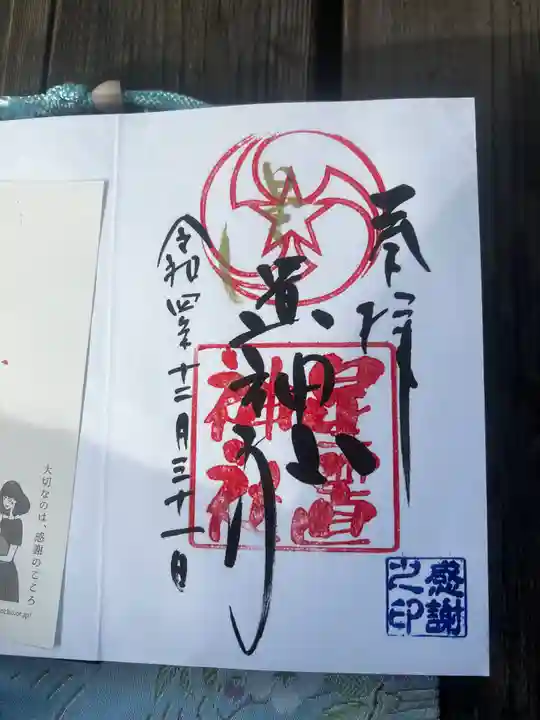 奉拝
星置神社
星置神社
令和四年十二月三十一日
感謝
之印
大切なのは、感謝のこころ